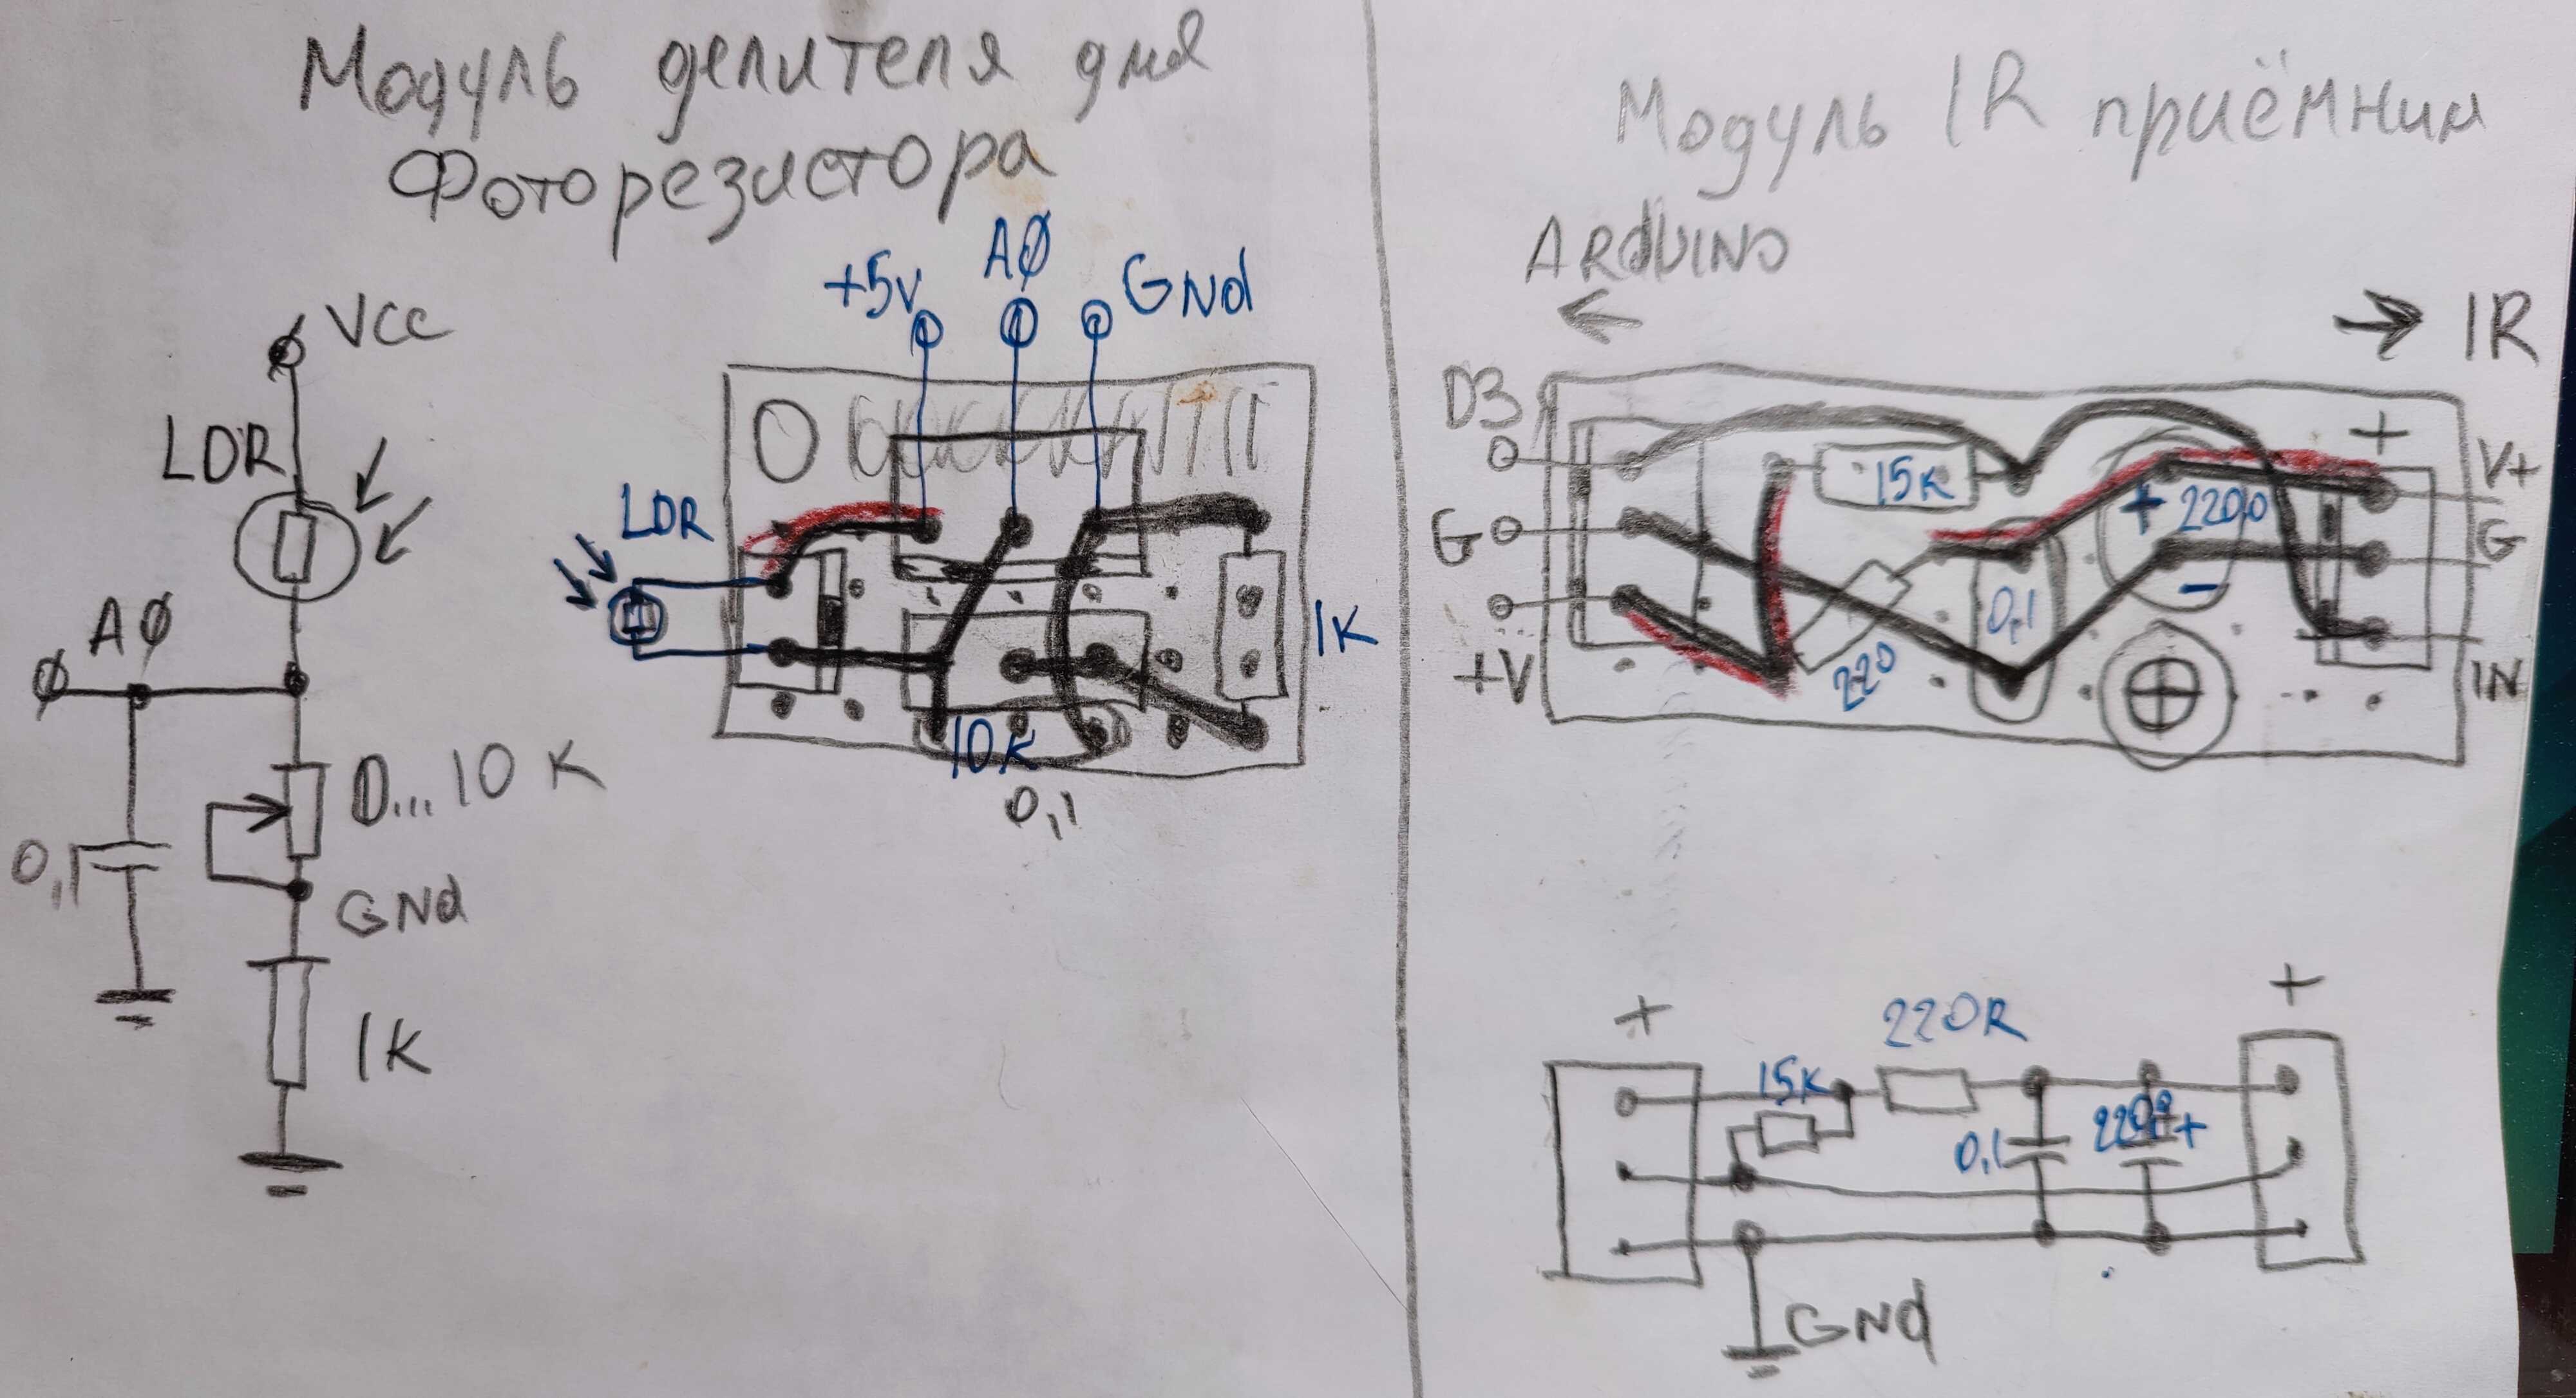 Модуль делителя для
Фоторезистора
VCC
LDR
AØ
0...10 K
0,1
GNd
1K
+5v
AØ
GNd
LDR
1K
10K
0,1
Модуль IR приёмник
ARdUINO
IR
D3
G
+V
15K
220
0,1
+ 220,0
-
+
V+
G
IN
+
220R
+
15K
0,1
+
GNd